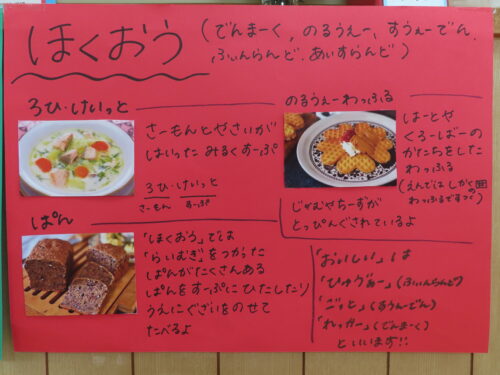 ほくおう
(でんまーく,のるうぇー,すうぇーでん,
ふぃんらんど,あいすらんど)
ろひ・けいっと
さーもんとやさいが
はいった みるくすーぷ
ろひ・けいっと
さーもん すーぷ
のるうぇーわっふる
はーとや
くろーばーの
かたちをした
わっふる
じゃむやちーずが
とっぴんぐされているよ
ぱん
「ほくおう」では
「らいむぎ」をつかった
ぱんがたくさんある
ぱんをすーぷにひたしたり
うえにぐざいをのせて
たべるよ
「おいしい」は
「ひゅゔぁー」(ふぃんらんど)
「ごっと」(すうぇーでん)
「れっかー」(でんまーく)
といいます!!